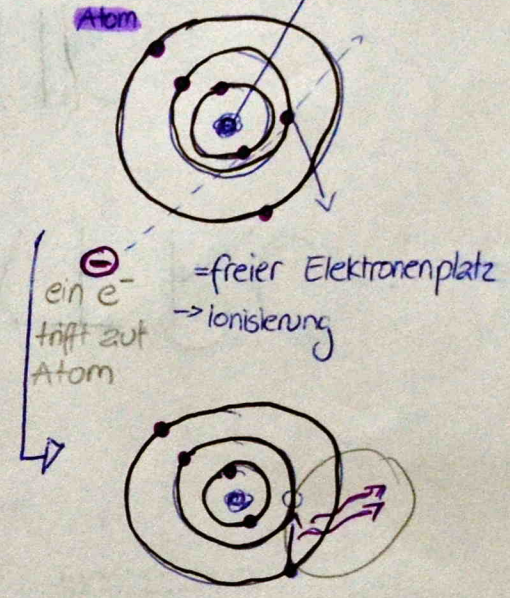 Atom
−
ein e⁻
trifft auf
Atom
=freier Elektronenplatz
→ionisierung